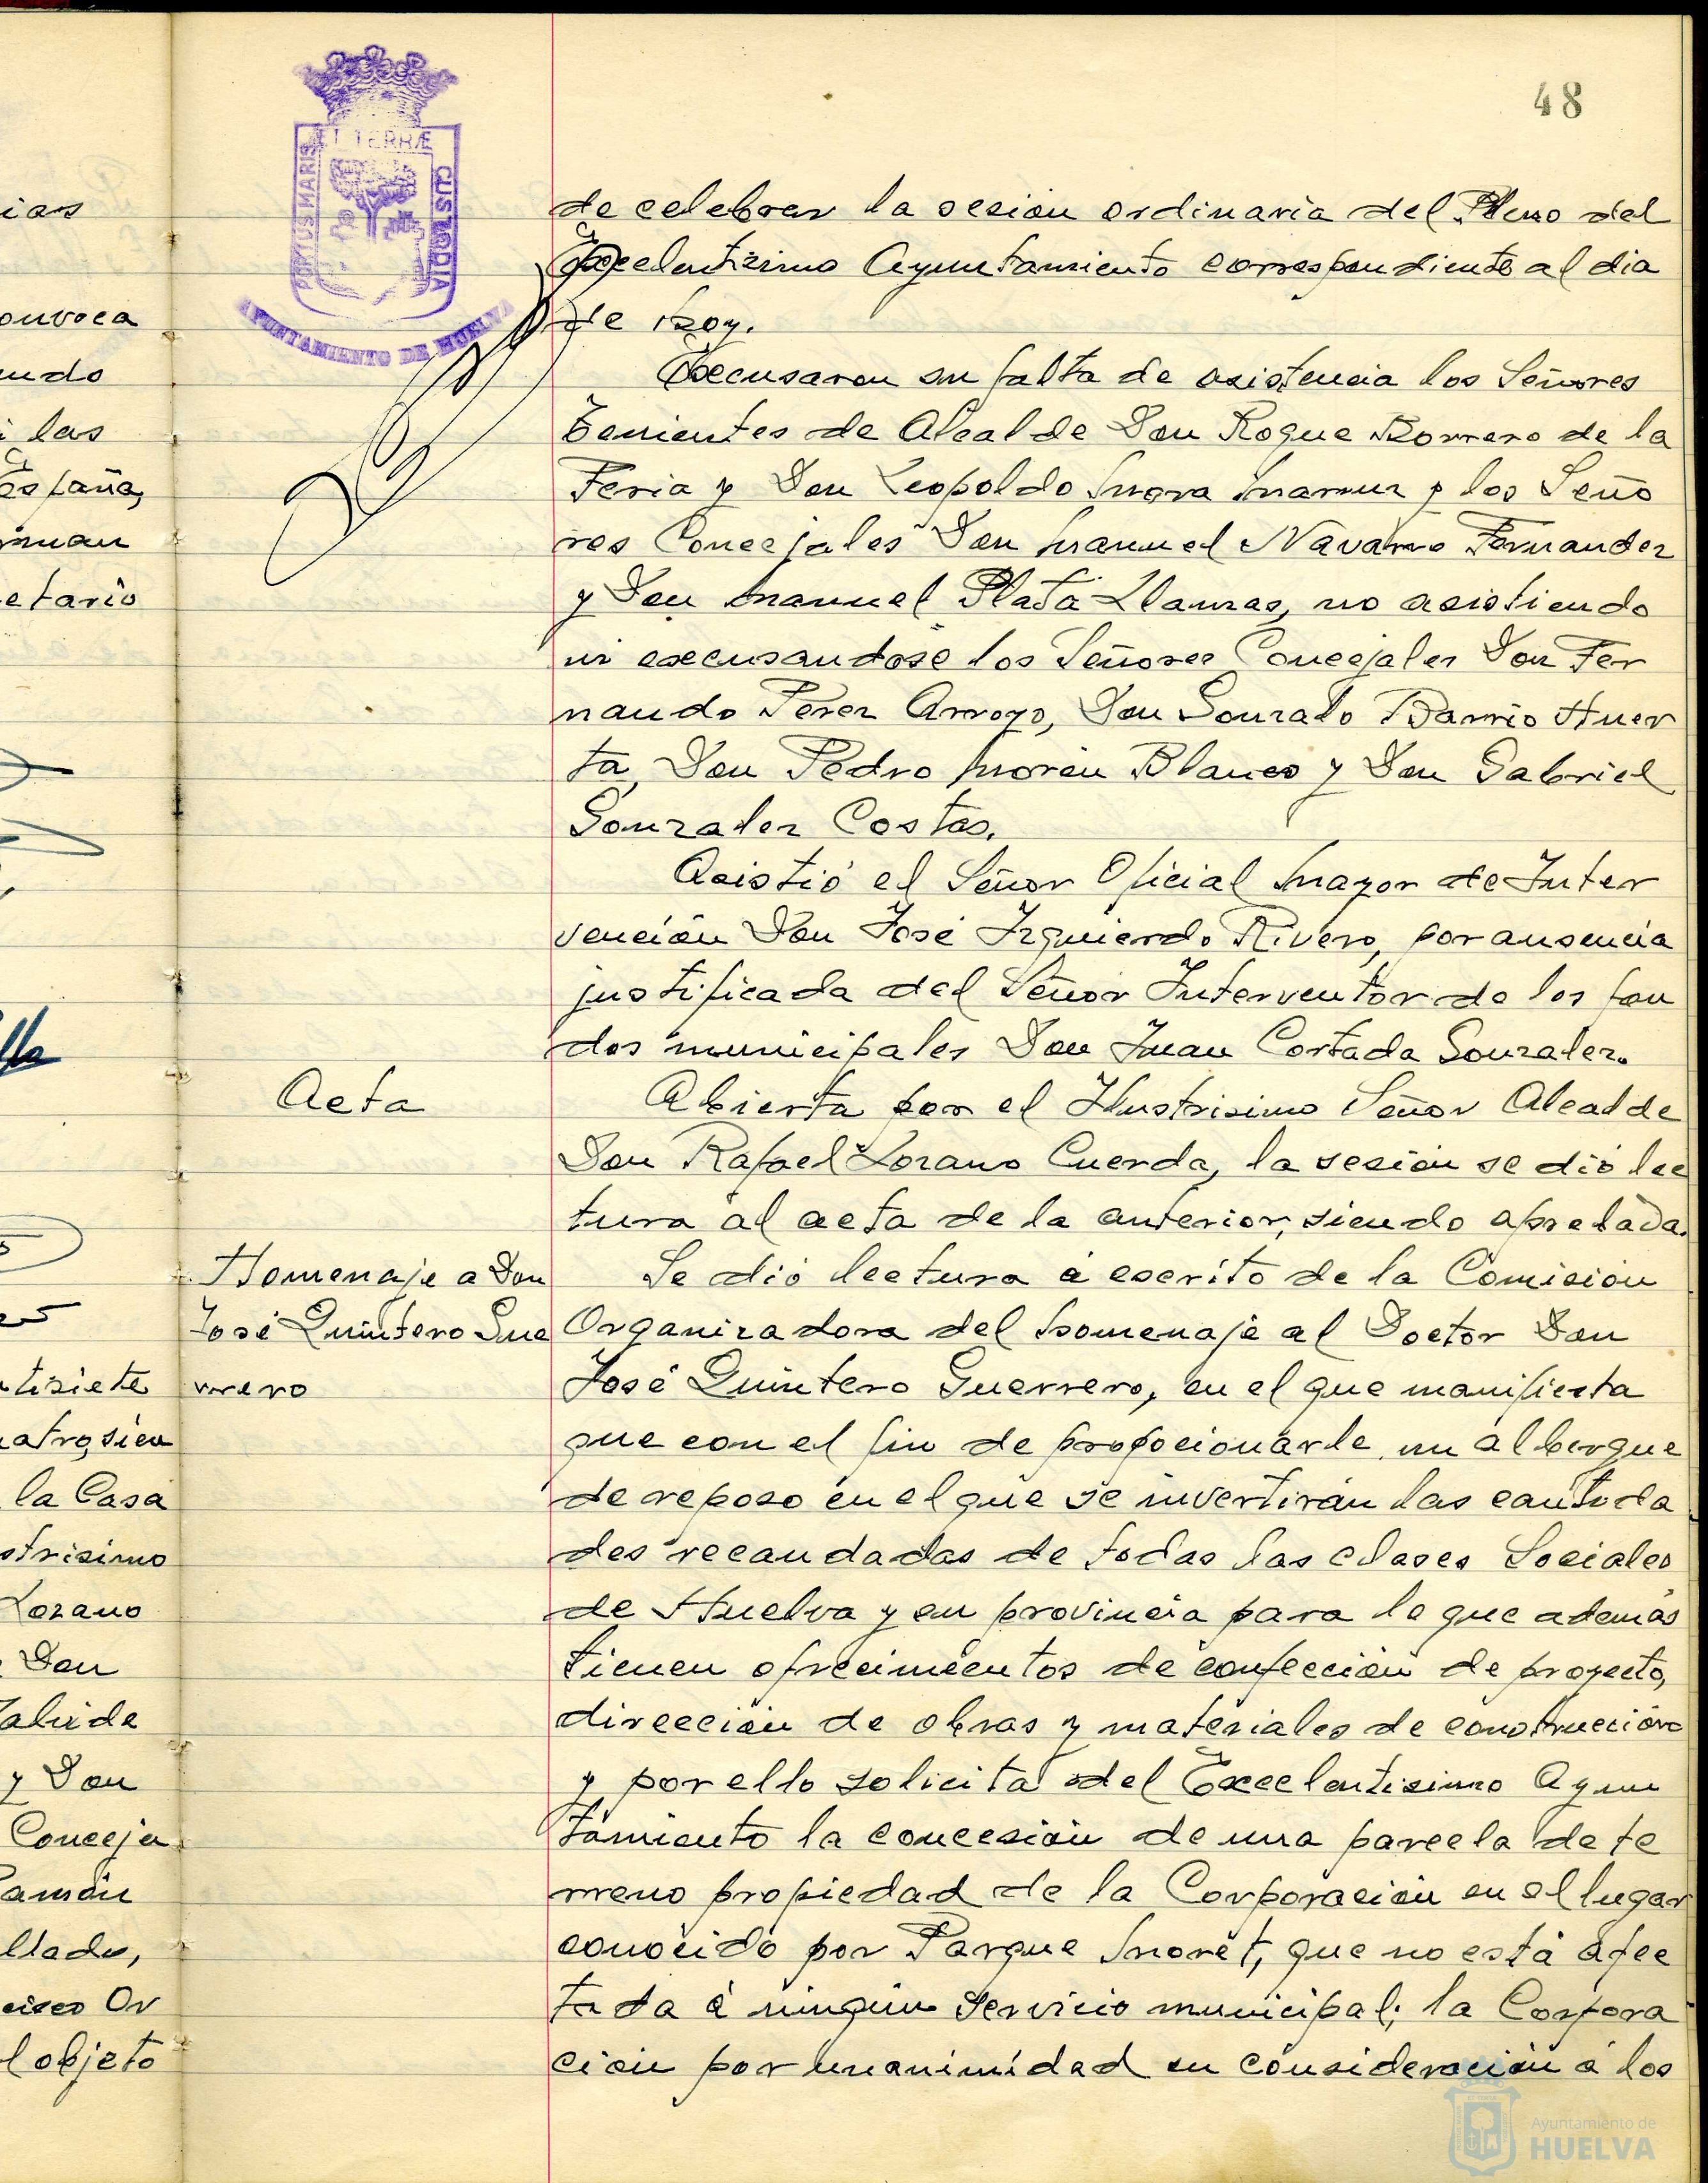 48
ET TERRÆ
PORTUS MARIS
CUSTODIA
AYUNTAMIENTO DE HUELVA
de celebrar la sesión ordinaria del Pleno del
Excelentísimo Ayuntamiento correspondiente al dia
de hoy.
Excusaron su falta de asistencia los Señores
Tenientes de Alcalde Don Roque Borrero de la
Feria y Don Leopoldo Mora y los Seño
res Concejales Don Manuel Navarro Fernandez
y Don Manuel Plata Llanzas, no asistiendo
ni excusandose los Señores Concejales Don Fer
nando Perez Arroyo, Don Gonzalo Barrio Huer
ta, Don Pedro Morón Blanco y Don Gabriel
Gonzalez Costas.
Asistió el Señor Oficial Mayor de Inter
vención Don José Izquierdo Rivero, por ausencia
justificada del Señor Interventor de los fon
dos municipales Don Juan Cortada Gonzalez.
Acta
Abierta por el Ilustrisimo Señor Alcalde
Don Rafael Lozano Cuerda, la sesión se dió lec
tura al acta de la anterior, siendo aprobada.
Homenaje a Don
José Quintero Gue
rrero
Se dió lectura a escrito de la Comisión
Organizadora del homenaje al Doctor Don
José Quintero Guerrero, en el que manifiesta
que con el fin de propocionarle un albergue
de reposo en el que se invertirán las cantida
des recaudadas de todas las clases Sociales
de Huelva y su provincia para lo que además
tienen ofrecimientos de confección de proyecto,
dirección de obras y materiales de construcción
y por ello solicita del Excelentisimo Ayun
tamiento la concesión de una parcela de te
rreno propiedad de la Corporación en el lugar
conocido por Parque Moret, que no está afec
tada á ningun servicio municipal; la Corpora
ción por unanimidad en consideración á los
ias
onvoca
ndo
i las
España,
etario
tisiete
la Casa
strisimo
Lozano
Don
y Don
Conceja
amón
llado,
cisco Or
l objeto
Ayuntamiento de
HUELVA